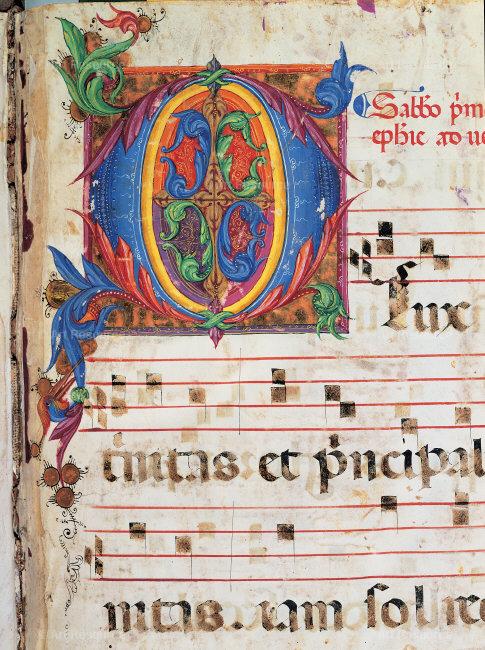 Sabbo p̄m
ephie ad ue
O lux
tͥnitas et pͥncipal
nitas. iam sol rec